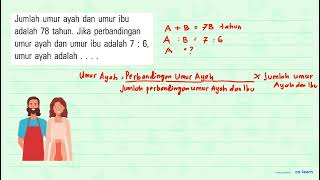 Jumlah umur ayah dan umur ibu
adalah 78 tahun. Jika perbandingan
umur ayah dan umur ibu adalah 7 : 6,
umur ayah adalah . . . .
A + B = 78 tahun
A : B = 7 : 6
A = ?
Umur Ayah = Perbandingan Umur Ayah x Jumlah umur
Jumlah perbandingan umur Ayah dan Ibu Ayah dan Ibu
co learn